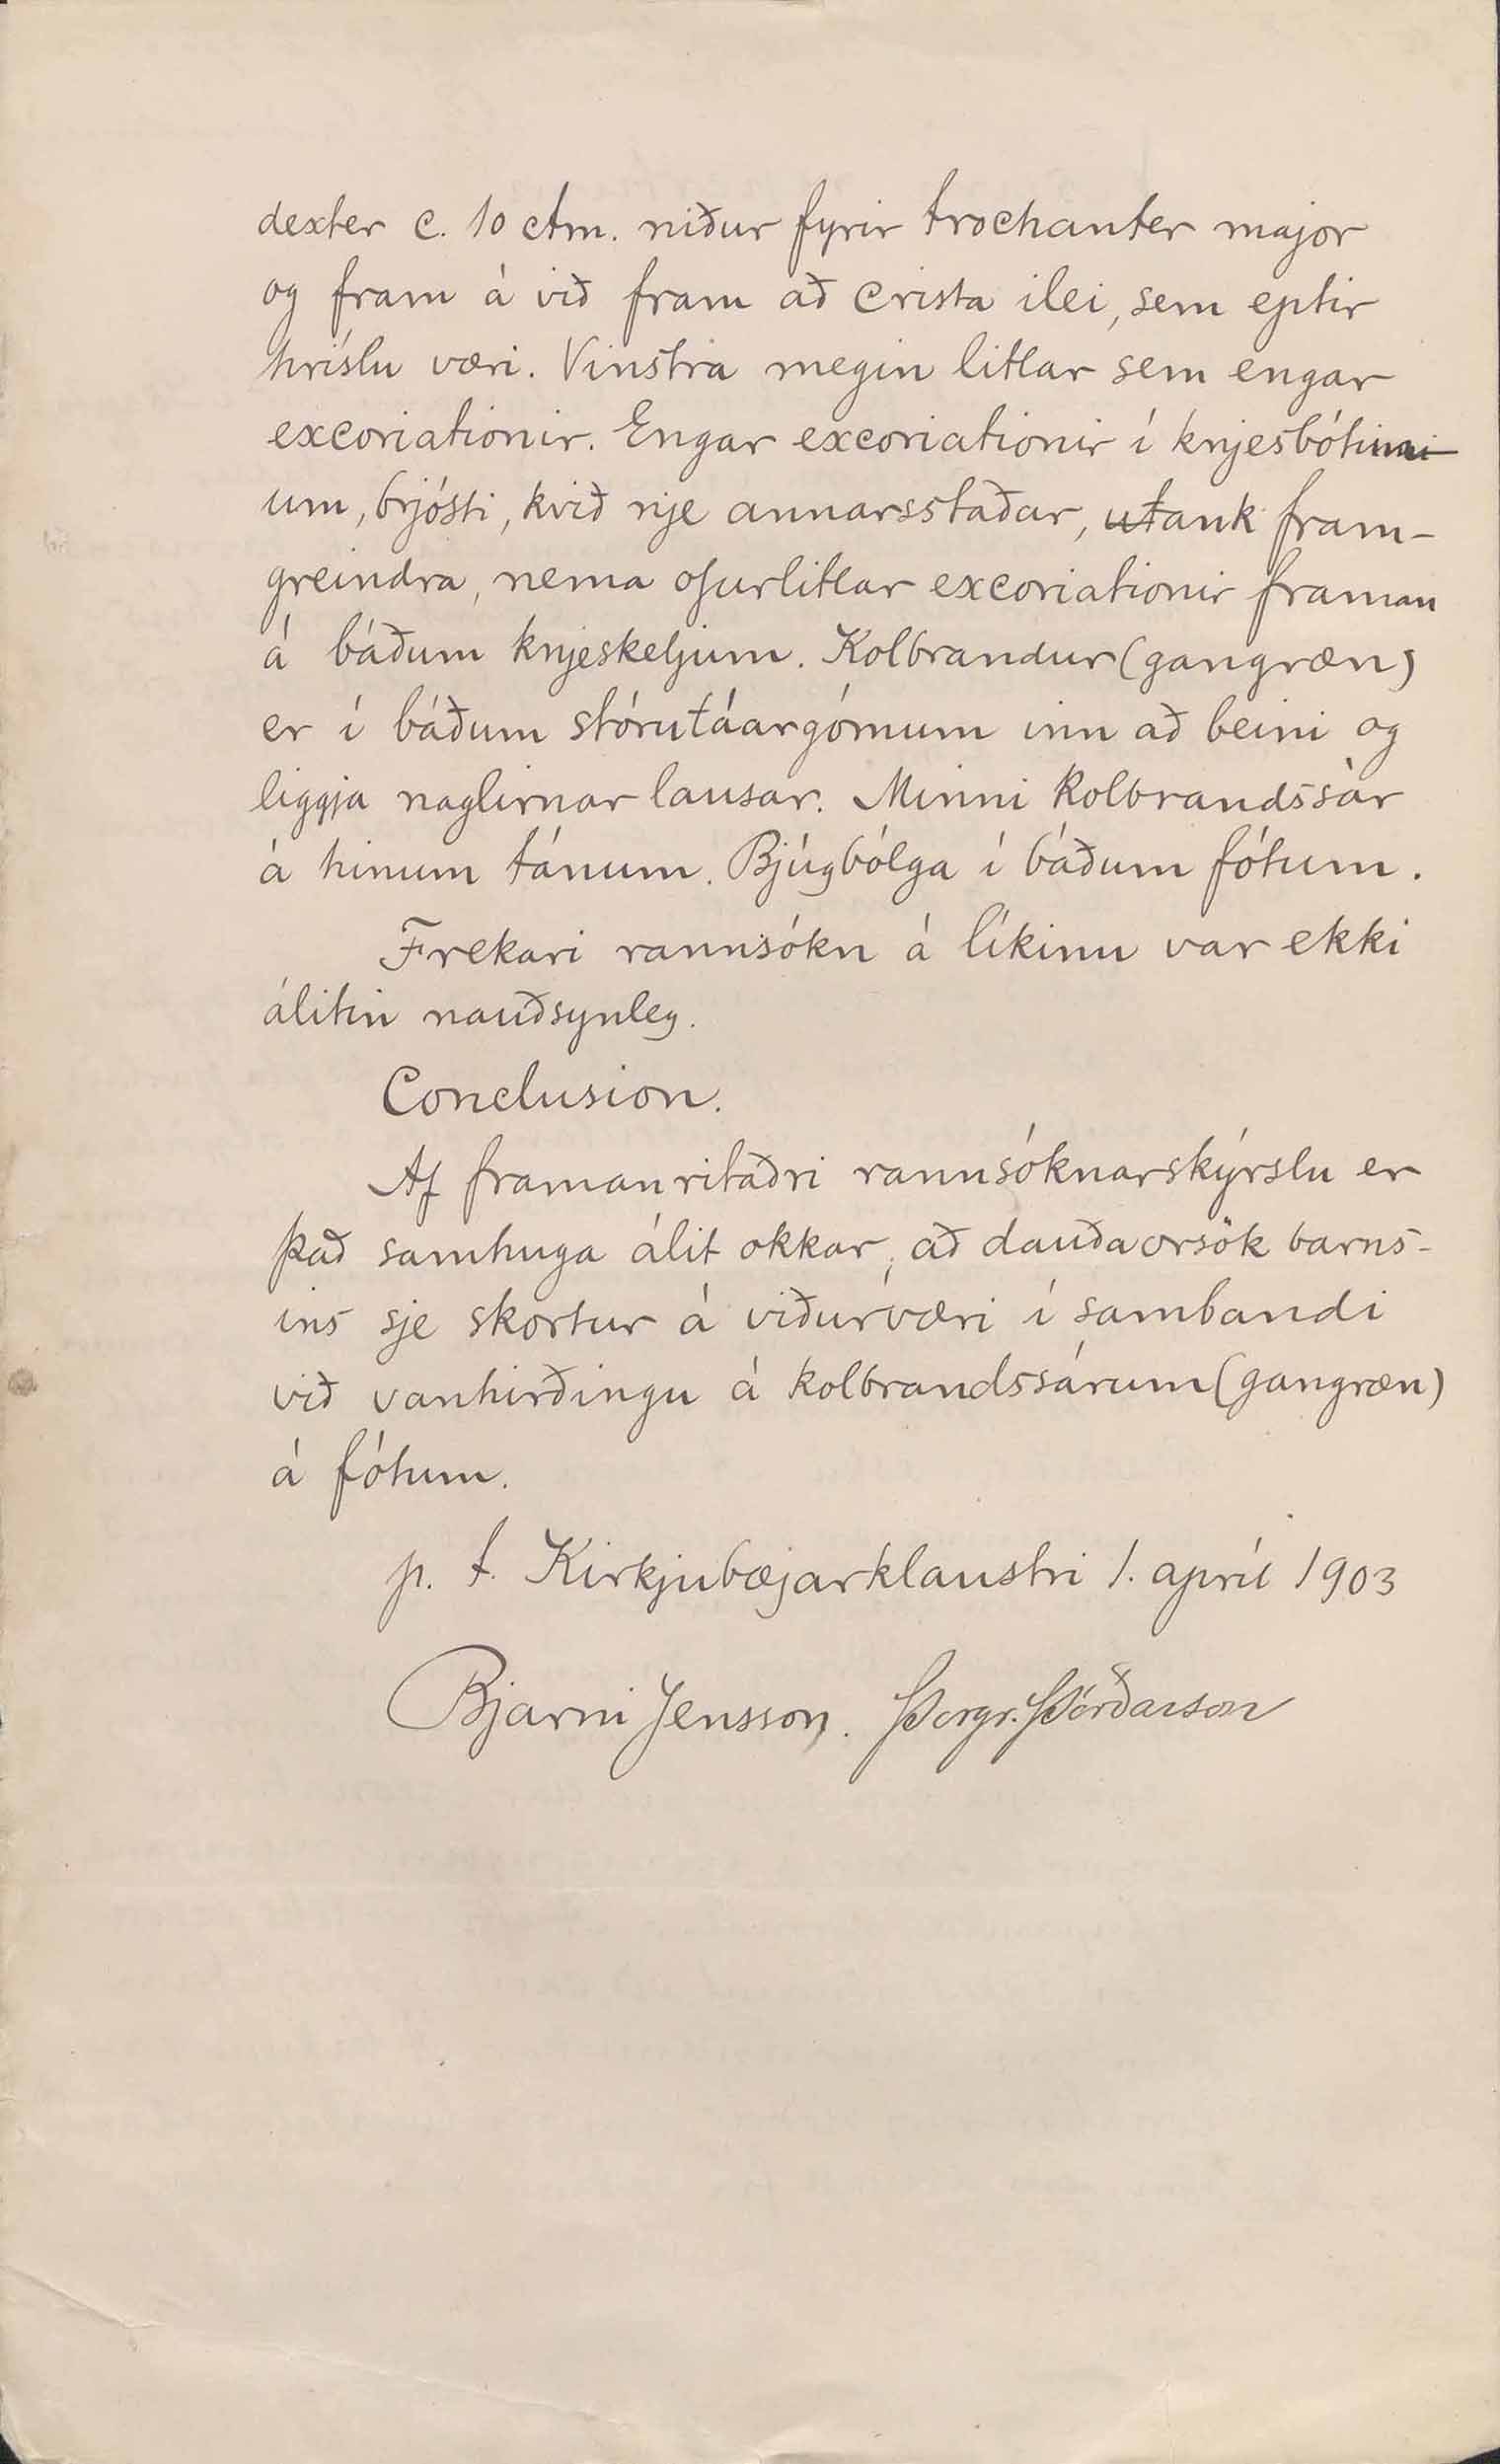 dexter c. 10 ctm. niður fyrir trochanter major
og fram á við fram að crista ilei, sem eptir
hríslu væri. Vinstra megin litlar sem engar
excoriationir. Engar excoriationir í knjesbótinni
um, brjósti, kvið nje annarsstaðar, utank fram-
greindra, nema ofurlitlar excoriationir framan
á báðum knjeskeljum. Kolbrandur (gangræn)
er í báðum stórutáargómum inn að beini og
liggja naglirnar lausar. Minni kolbrandssár
á hinum tánum. Bjúgbólga í báðum fótum.
Frekari rannsókn á líkinu var ekki
álitin nauðsynleg.
Conclusion.
Af framanritaðri rannsóknarskýrslu er
það samhuga álit okkar, að dauðaorsök barns-
ins sje skortur á viðurværi í sambandi
við vanhirðingu á kolbrandssárum (gangræn)
á fótum.
p. t. Kirkjubæjarklaustri 1. apríl 1903
Bjarni Jensson. Þorgr. Þórðarson